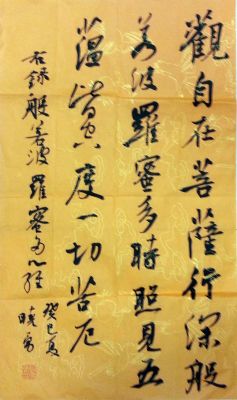 觀自在菩薩行深般
若波羅蜜多時照見五
蘊皆空度一切苦厄
右録般若波羅蜜多心經
癸巳夏
曉勇